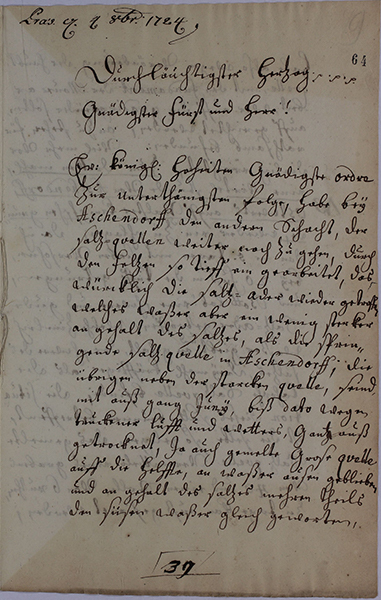 Praes. q. 2 8br. 1724,
9
64
Durchläuchtigster Hertzog
Gnädigster Fürst und Herr!
Ew: Königl. Hoheiten Gnädigste ordre
Zur unterthänigsten folge, habe bey
Aschendorff den andern Schacht, der
saltz quellen weiter noch zu gehen, durch
den felßen so tieff ein gearbeitet, das
würcklich die saltz ader wieder getroffen
welches waßer aber ein wenig stercker
an gehalt des saltzes, als die sprin„
gende saltz quelle in Aschendorff, die
übrigen neben der starcken quelle, seind
mit auß gang Juny, biß dato wegen
truckener lufft und wetters, Gantz auß
getrocknet, Ja auch gemelte Grose quelle
auff die helffte, an waßer ausen geblieben
und an gehalt des saltzes mehren theils
den süsen waßer gleich geworten,
39